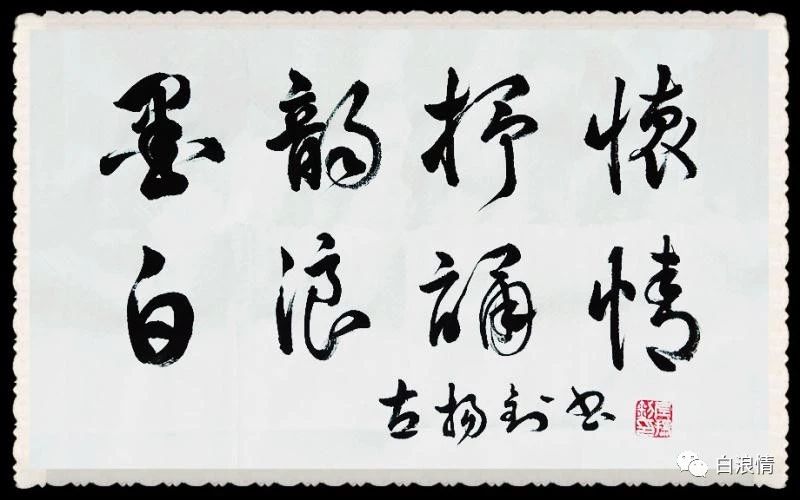 墨韵抒懷
白浪誦情
古扬钊书
白浪情